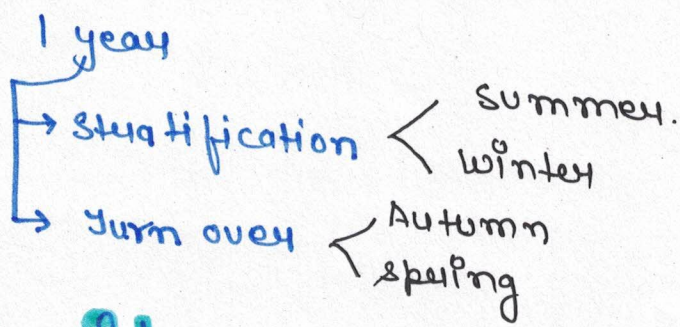 1 year
→ Stratification < Summer.
Winter
→ Turn over < Autumn
Spring